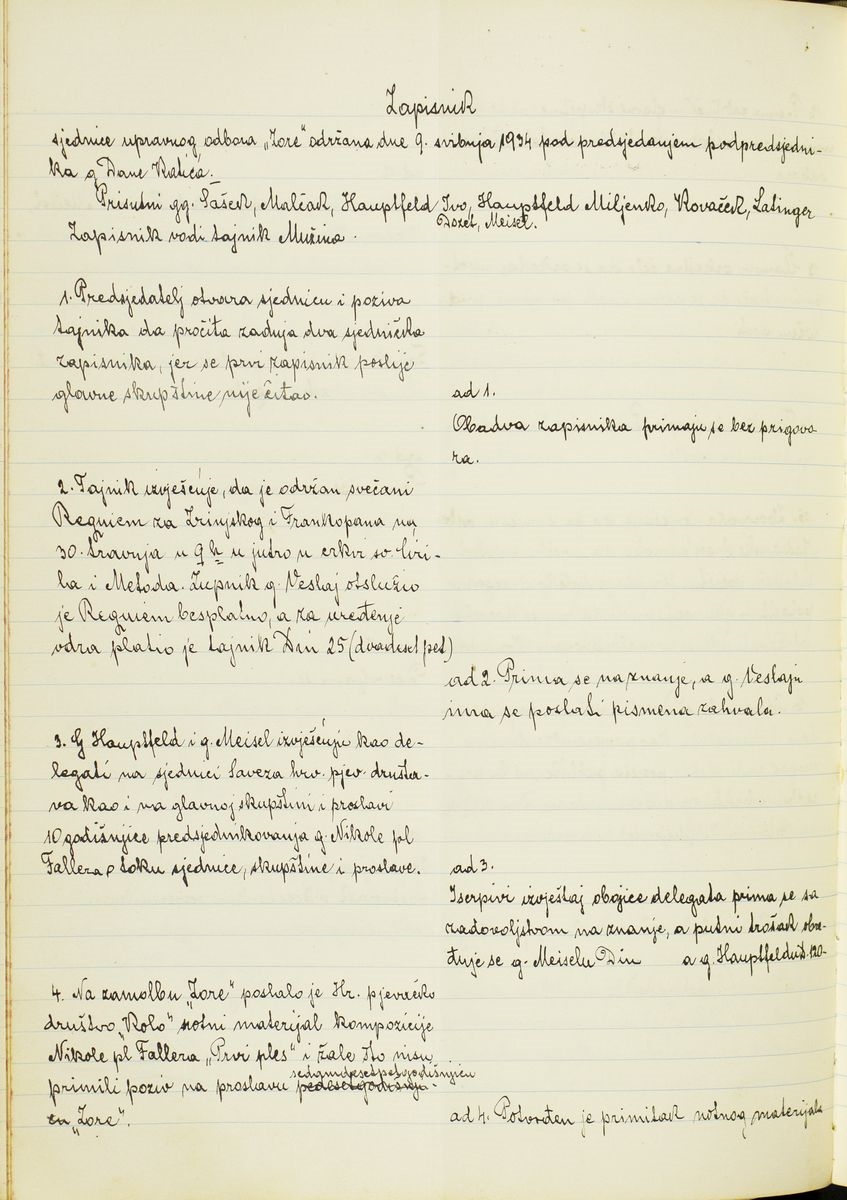 Zapisnik
sjednice upravnog odbora „Zore" održana dne 9. svibnja 1934 pod predsjedanjem podpredsjedni-
ka g Dane Katića.
Prisutni gg. Sášek, Malčak, Hauptfeld Ivo, Hauptfeld Miljenko, Kovaček, Latinger
Dozet, Meisel.
Zapisnik vodi tajnik Mužina.
1. Predsjedatelj otvara sjednicu i poziva
tajnika da pročita zadnja dva sjednička
zapisnika, jer se prvi zapisnik poslije
glavne skupštine nije čitao.
ad 1.
Obadva zapisnika primaju se bez prigovo
ra.
2. Tajnik izvješćuje, da je održan svečani
Requiem za Zrinjskog i Frankopana na
30. travnja u 9 h u jutro u crkvi sv. Ćiri-
la i Metoda. Župnik g. Veslaj otslužio
je Requiem besplatno, a za uređenje
odra platio je tajnik Din 25 (dvadeset pet)
ad 2. Prima se na znanje, a g. Veslaju
ima se poslati pismena zahvala.
3. G Hauptfeld i g. Meisel izvješćuju kao de-
legati na sjednici Saveza hrv. pjev. društa-
va kao i na glavnoj skupštini i proslavi
10 godišnjice predsjednikovanja g. Nikole pl
Fallera o toku sjednice, skupštine i proslave.
ad 3.
Iscrpivi izvještaj obojice delegata prima se sa
zadovoljstvom na znanje, a putni trošak obre-
đuje se g. Meiselu Din a g. Hauptfeldu D. 120-
4. Na zamolbu „Zore" poslalo je Hr. pjevačko
društvo „Kolo" notni materijal kompozicije
Nikole pl Fallera „Prvi ples" i žale što nisu
sedamdesetpetogodišnjicu
primili poziv na proslavu pedesetgodišnji-
cu „Zore".
ad 4. Potvrđen je primitak notnog materijala